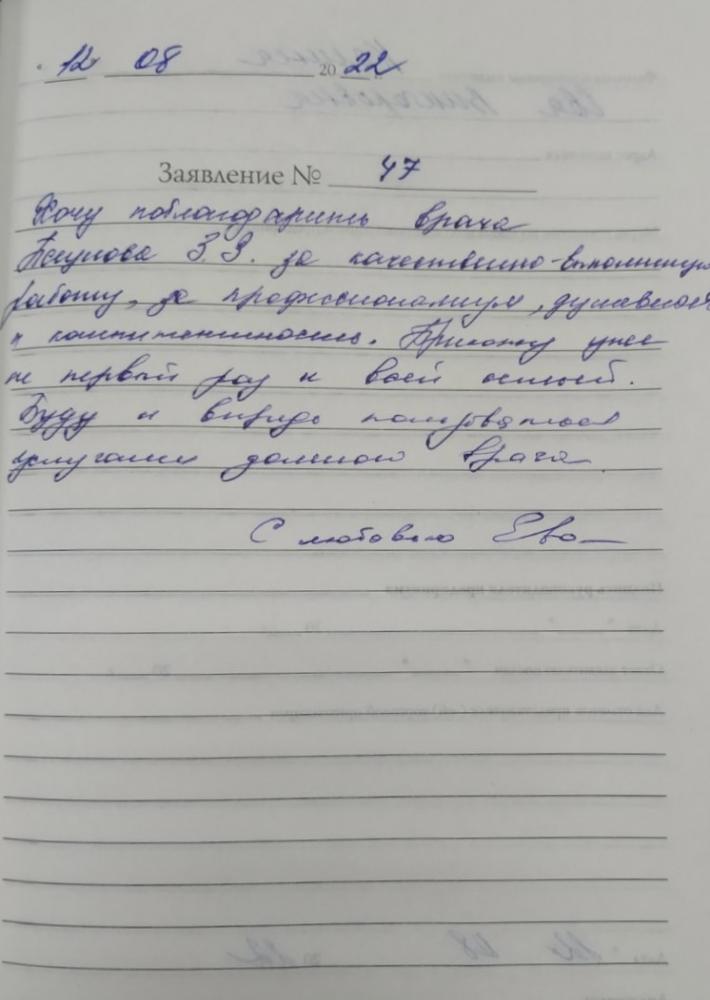 " 12 " 08 20 22
Заявление № 47
Хочу поблагодарить врача
З.З. за качественно-выполненную
работу, за профессионализм, душевность
и компетентность. Прихожу уже
не первый раз и всей семьей.
Буду и впредь пользоваться
услугами данного врача.
С любовью Ева